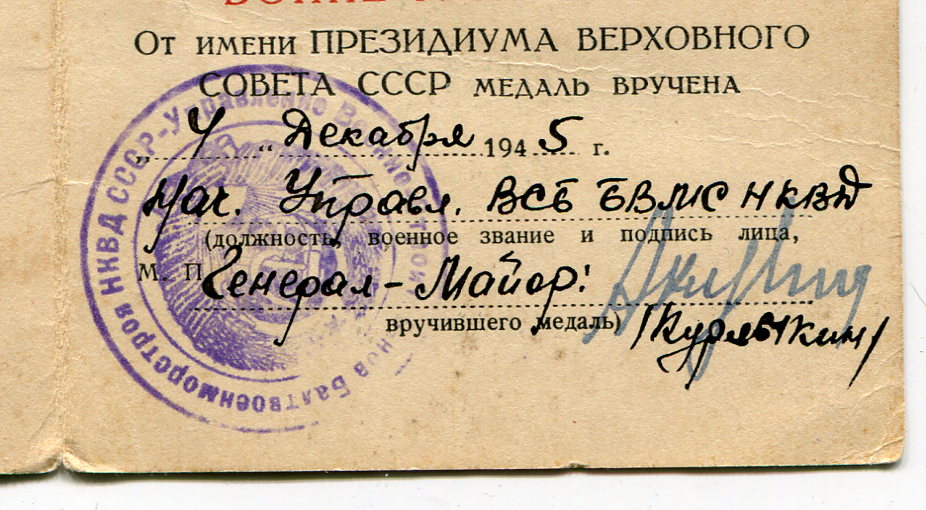 От имени ПРЕЗИДИУМА ВЕРХОВНОГО
СОВЕТА СССР медаль вручена
„ 4 “ Декабря 1945 г.
Нач. Управл. ВСБ БВМС НКВД
(должность, военное звание и подпись лица,
М. П. Генерал-Майор:
вручившего медаль)
/Курлыкин/
НКВД СССР-Управление
Балтвоенморстроя